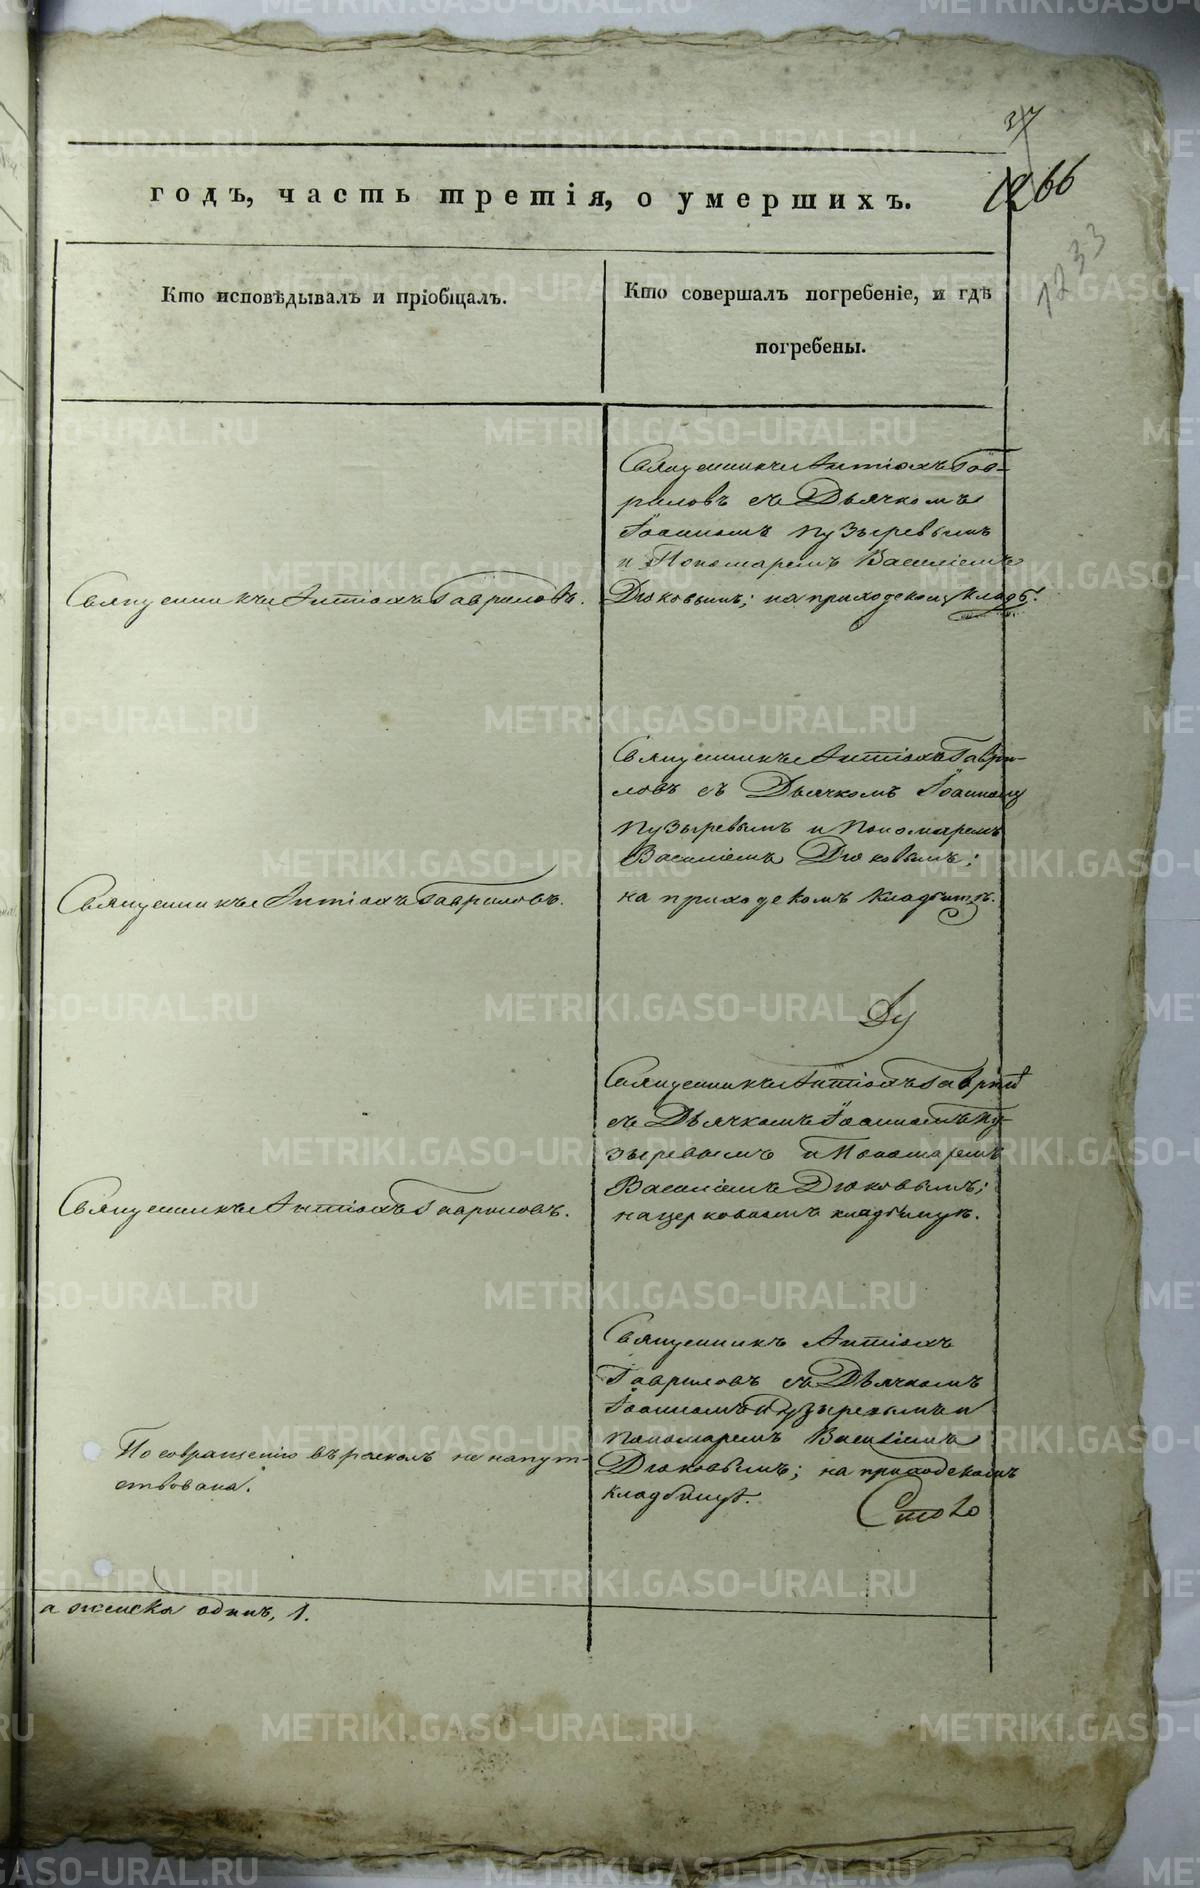 37
1266
1233
годъ, часть третія, о умершихъ.
Кто исповѣдывалъ и пріобщалъ.
Кто совершалъ погребеніе, и гдѣ
погребены.
Священникъ Антіохъ Гавриловъ.
Священникъ Антіохъ Гав-
риловъ съ Дьячкомъ
Іоанномъ Пузыревымъ
и Пономаремъ Василіемъ
Дюковымъ; на приходском кладб.
Священникъ Антіохъ Гавриловъ.
Священникъ Антіохъ Гаври-
ловъ съ Дьячкомъ Іоанномъ
Пузыревымъ и Пономаремъ
Василіемъ Дюковымъ;
на приходскомъ кладбищѣ.
Священникъ Антіохъ Гавриловъ.
Священникъ Антіохъ Гаврил
съ Дьячкомъ Іоанномъ Пу-
зыревымъ и Пономаремъ
Василіемъ Дюковымъ;
на церковномъ кладбищѣ.
По совращенію въ расколъ не напут-
ствована.
Священникъ Антіохъ
Гавриловъ съ Дьячкомъ
Іоанномъ Пузыревымъ и
Пономаремъ Василіемъ
Дюковымъ; на приходскомъ
кладбищѣ.
а женска одинъ, 1.
METRIKI.GASO-URAL.RU